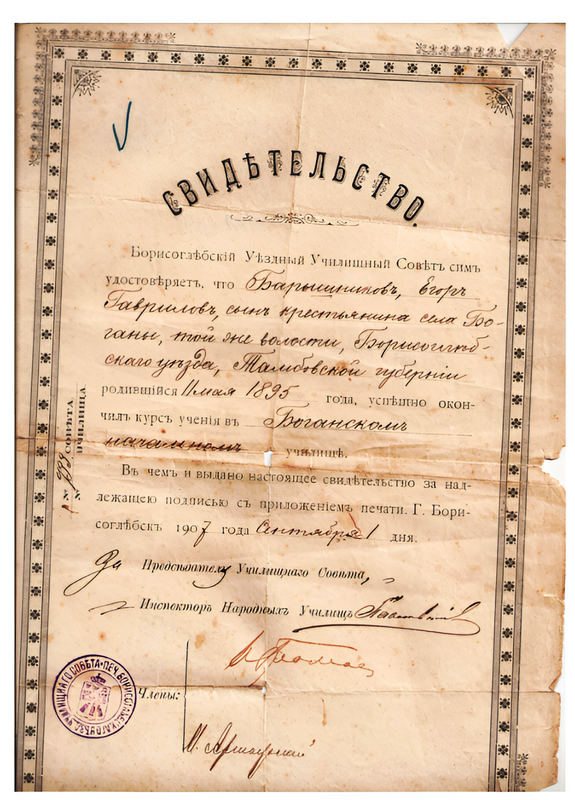 СВИДѢТЕЛЬСТВО.
Борисоглѣбскій Уѣздный Училищный Совѣтъ симъ
удостовѣряетъ, что Барышниковъ, Егоръ
Гавриловъ, сынъ крестьянина села Бо-
ганы, той же волости, Борисоглѣб-
скаго уѣзда, Тамбовской губерніи
родившійся 11 мая 1895 года, успѣшно окон-
чилъ курсъ ученія въ Боганскомъ
начальномъ училищѣ.
Въ чемъ и выдано настоящее свидѣтельство за над-
лежащею подписью съ приложеніемъ печати. Г. Бори-
соглѣбскъ 1907 года Сентября 1 дня.
За Предсѣдателя Училищнаго Совѣта,
Инспекторъ Народныхъ Училищъ
Члены:
№ СОВѢТА
№ УЧИЛИЩА
ПЕЧ. БОРИСОГЛѢБ. УѢЗДН. УЧИЛИЩНАГО СОВѢТА